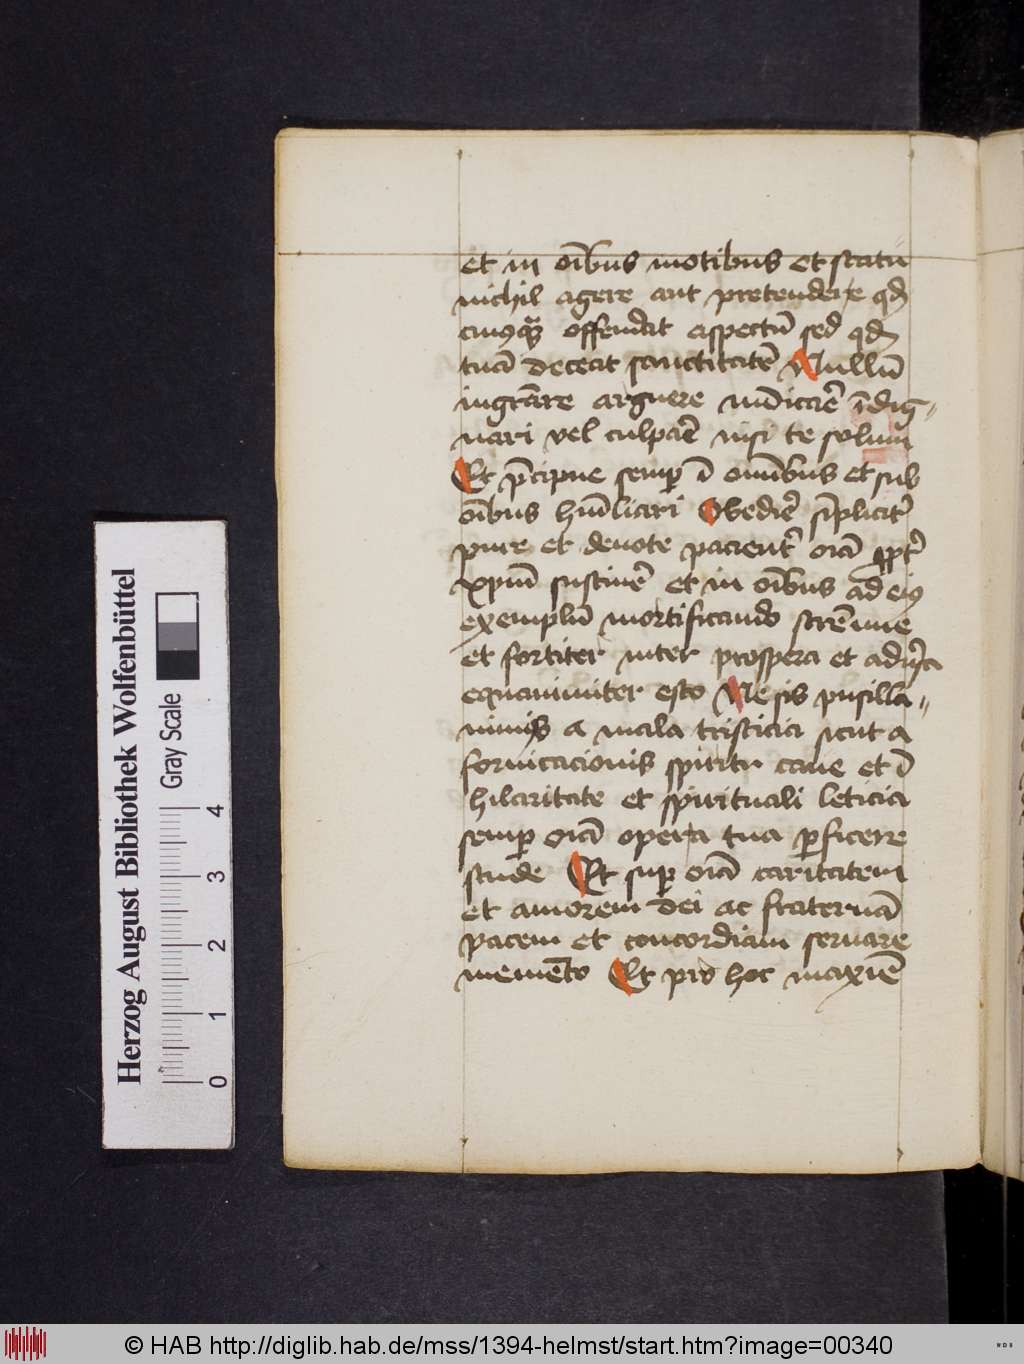 et in oı̄bus motibus et statu
nichil agere aut pretendere qd̄
cuiusqͣ offendat aspectū sed qd̄
tuā deceat sanctitatē Nullū
ingrauare arguere iudicare ı̄dig=
nari vel culpare nisi te solum
Et p̄cipue semꝑ ı̄ omı̄bus et sub
oı̄bus hūiliari Obedire sı̄plicit̄
pure et deuote pacient̄ oı̄a ꝓpt̄
xpm̄ sustinē et in oı̄bus ad eiꝰ
exemplū mortificando strēnue
et fortiter inter prospera et adūsa
equanimiter esto Ne sis pusilla=
nimis a mala tristicia sicut a
fornicacionis spiritu caue et ı̄
hilaritate et spirituali leticia
semꝑ oı̄a opera tua ꝑficere
stude Et suꝑ oı̄a caritatem
et amorem dei ac fraternā
pacem et concordiam seruare
memēto Et pro hoc maxıē
Herzog August Bibliothek Wolfenbüttel
Gray Scale
0 1 2 3 4
© HAB http://diglib.hab.de/mss/1394-helmst/start.htm?image=00340